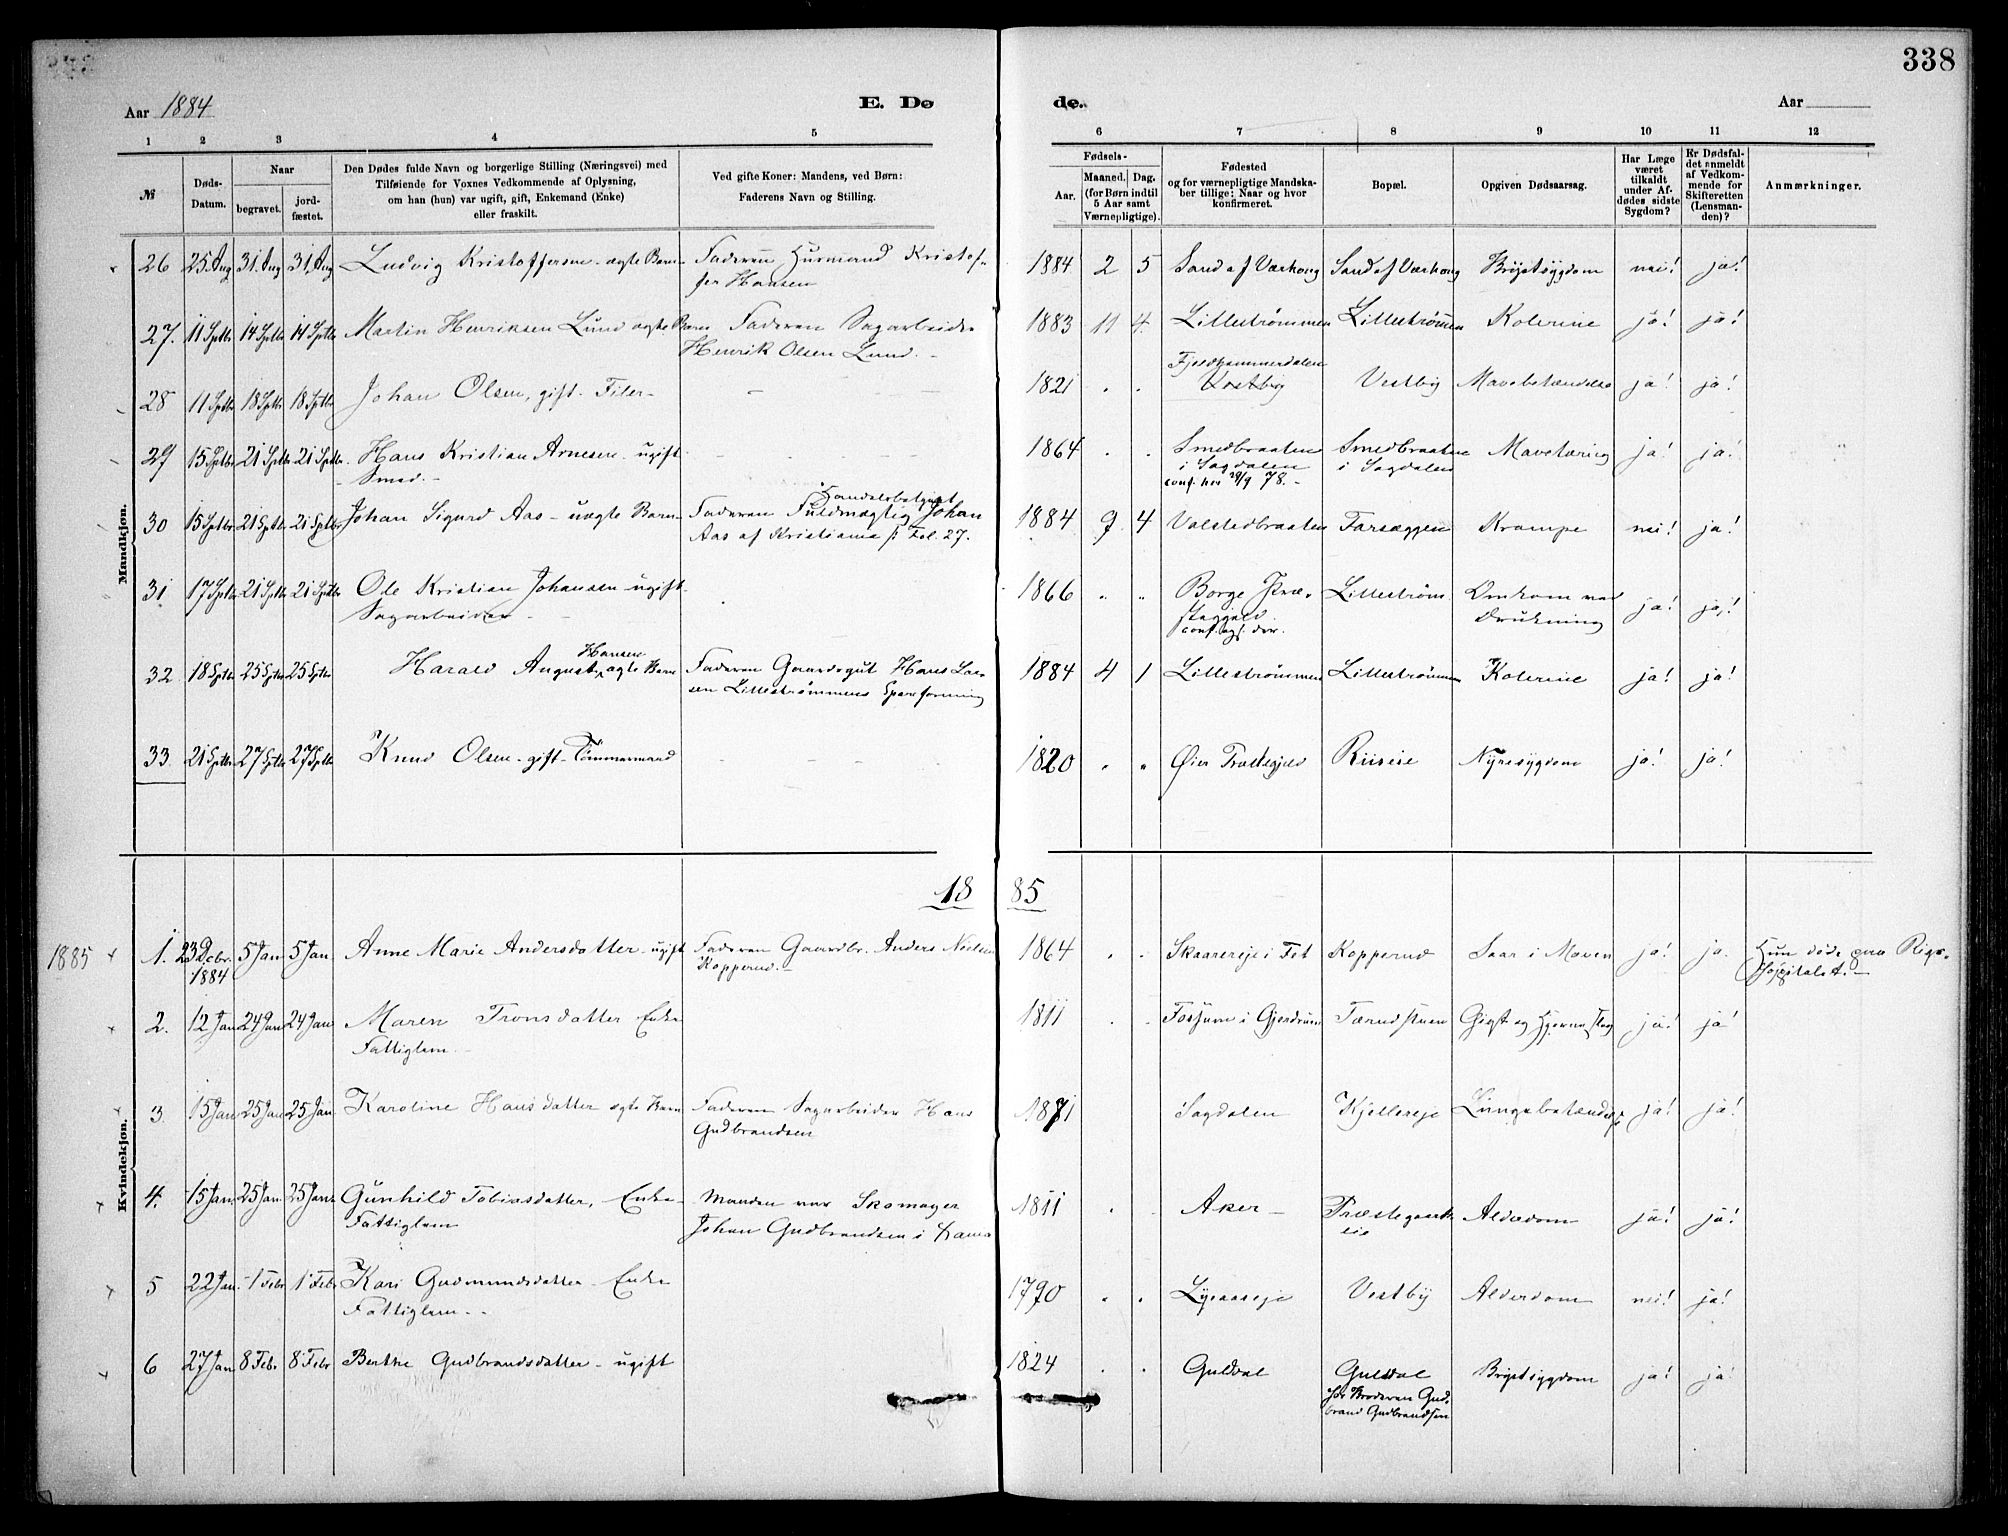 338
Aar 1884
E. Dø
de.
Aar
1 2 3 4 5 6 7 8 9 10 11 12
№
Døds-
Datum.
Naar
begravet.
jord-
fæstet.
Den Dødes fulde Navn og borgerlige Stilling (Næringsvei) med
Tilføiende for Voxnes Vedkommende af Oplysning,
om han (hun) var ugift, gift, Enkemand (Enke)
eller fraskilt.
Ved gifte Koner: Mandens, ved Børn:
Faderens Navn og Stilling.
Fødsels-
Aar.
Maaned. Dag.
(for Børn indtil
5 Aar samt
Værnepligtige).
Fødested
og for værnepligtige Mandska-
ber tillige: Naar og hvor
konfirmeret.
Bopæl.
Opgiven Dødsaarsag.
Har Læge
været
tilkaldt
under Af-
dødes sidste
Sygdom?
Er Dødsfal-
det anmeldt
af Vedkom-
mende for
Skifteretten
(Lensman-
den)?
Anmærkninger.
Mandkjøn.
26 25. Aug 31. Aug 31. Aug Ludvig Kristoffersen - ægte Barn - Faderen Husmand Kristof- 1884 2 5 Sand af Værhoug Sand af Værhoug Brÿstsygdom nei! ja!
fer Hansen
27. 11 Sptbr 14 Sptbr 14 Sptbr Martin Henriksen Lund ægte Barn Faderen Sagarbeider 1883 11 4. Lillestrømmen Lillestrømmen Kolerine ja! ja!
Henrik Olsen Lund. -
Fjeldhammerdalen
28 11 Sptbr 18 Sptbr 18 Sptbr Johan Olsen, gift. Filer - 1821 Vestby Vestbÿ Mavebetændelse ja! ja!
29 15 Sptbr 21 Sptbr 21 Sptbr Hans Kristian Arnesen - ugift 1864 Smedbraaten Smedbraaten Mavetæring ja! ja!
Smed. - i Sagdalen i Sagdalen
conf. her 29/9 78. -
Handelsbetjent
30 15 Sptbr 21 Sptbr 21 Sptbr Johan Sigurd Aas - uægte Barn - Faderen Fuldmægtig Johan 1884 7 4 Valstedbraaten Farseggen Krampe nei! ja!
Aas af Kristiania Fol. 27.
31 17 Sptbr 21 Sptbr 21 Sptbr Ole Kristian Johansen - ugift - 1866 Borge Præ- Lillestrøm Omkom ved ja! ja!
Sagarbeider - stegjeld. Drukning
conf. der.
Hansen
32 18 Sptbr 25 Sptbr 25 Sptbr Harald August, ægte Barn Faderen Gaardsgut Hans Lar- 1884 4 1 Lillestrømmen Lillestrømmen Kolerine ja! ja!
sen Lillestrømmens Spareforening
33 21 Sptbr 27 Sptbr 27 Sptbr Knud Olsen - gift - Tømmermand 1820 Øier Præstegjeld Riiseie Nyresygdom ja! ja!
Kvindekjøn.
18 85
1885 1. 23 Decbr. 5 Jan 5 Jan Anne Marie Andersdatter - ugift Faderen Gaardbr. Anders Nielsen 1864 Skaarereje i Fet Kopperud Saar i Maven ja! ja. Hun døde paa Rigs-
1884 Kopperud. - Hospitalet. -
2. 12 Jan 24 Jan 24 Jan Maren Tronsdatter Enke 1811 Fossum i Gjerdrum Tærudstuen Gigt og Hjerneslag ja! ja!
Fattiglem. -
3. 15 Jan 25 Jan 25 Jan Karoline Hansdatter ægte Barn Faderen Sagarbeider Hans 1871 Sagdalen Kjellereje Lungebetændelse ja! ja!
Gudbrandsen
4. 15 Jan. 25 Jan. 25 Jan. Gunhild Tobiasdatter, Enke - Manden var Skomager 1811 Aker - Præstegaards- Alderdom ja! ja!
Fattiglem Johan Gudbrandsen i eie
5 22 Jan. 1 Febr 1 Febr Kari Gudmundsdatter - Enke 1790 Lysaaseje Vestbÿ Alderdom nei! ja!
Fattiglem. -
6 27 Jan 8 Febr. 8 Febr Berthe Gudbrandsdatter - ugift 1824 Guldal Guldal Brÿstsygdom ja! ja!
hos Broderen Gud-
brand Gudbrandsen